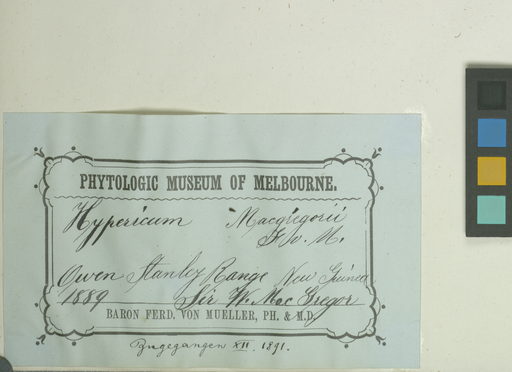 PHYTOLOGIC MUSEUM OF MELBOURNE.
Hypericum Macgregorii
F v. M.
Owen Stanley Range New Guinea
1889 Sir W. Mac Gregor
BARON FERD. VON MUELLER, PH. & M.D.
Zugegangen XII. 1891.